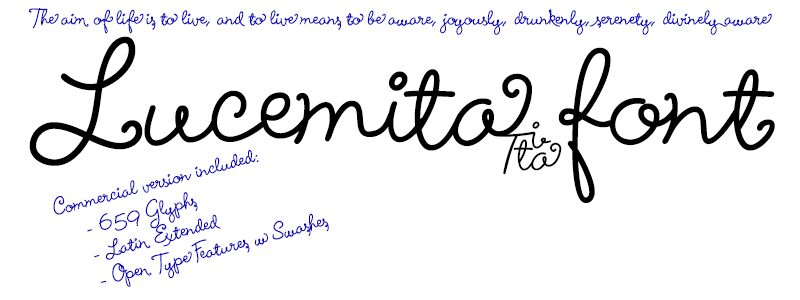 The aim of life is to live, and to live means to be aware, joyously, drunkenly, serenety, divinely aware
Lucemita font
Tita
Commercial version included:
- 659 Glyphs
- Latin Extended
- Open Type Features w Swashes